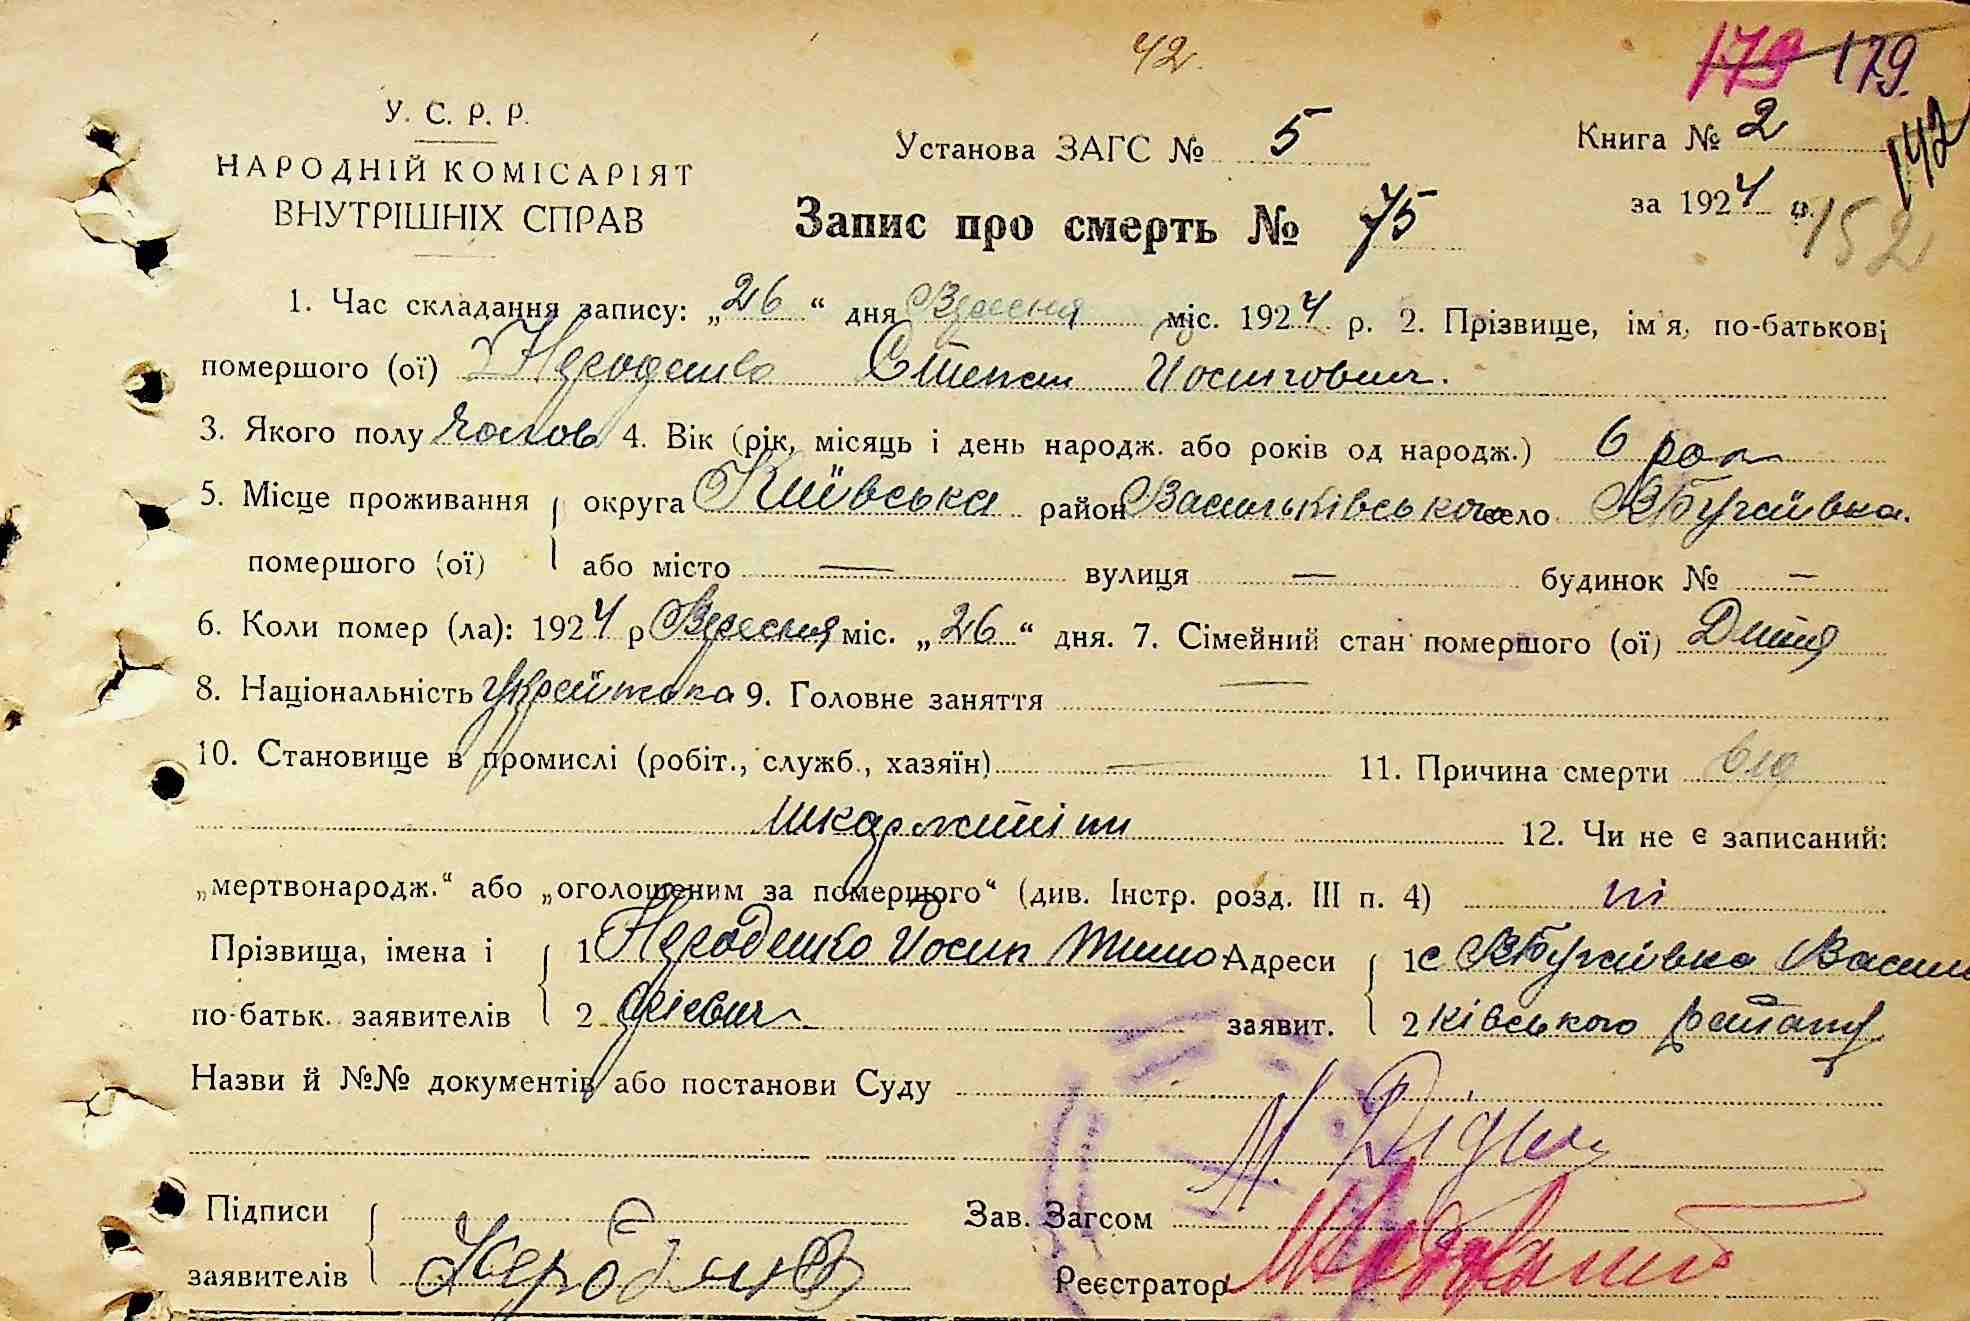 42.
179 179.
142
152
У. С. Р. Р.
НАРОДНІЙ КОМІСАРІЯТ
ВНУТРІШНІХ СПРАВ
Установа ЗАГС № 5
Книга № 2
за 1924 р.
Запис про смерть № 75
1. Час складання запису: „26“ дня Вересня міс. 1924 р. 2. Прізвище, ім'я, по-батькові
помершого (ої) Нероденко Степан Йосипович.
3. Якого полу чолов 4. Вік (рік, місяць і день народж. або років од народж.) 6 рок
5. Місце проживання округа Київська район Васильківського село В Бугаївка.
помершого (ої) або місто — вулиця — будинок № —
6. Коли помер (ла): 1924 р Вересня міс. „26“ дня. 7. Сімейний стан помершого (ої) Дитя
8. Національність українська 9. Головне заняття —
10. Становище в промислі (робіт., служб., хазяїн) — 11. Причина смерти від
шкарлатіни 12. Чи не є записаний:
„мертвонародж.“ або „оголошеним за помершого“ (див. Інстр. розд. III п. 4) ні
Прізвища, імена і 1 Нероденко Йосип Тимо Адреси 1 с ВБугаївка Василь
по-батьк. заявителів 2 фієвич заявит. 2 ківського району
Назви й №№ документів або постанови Суду
Підписи
Зав. Загсом
заявителів
Реєстратор